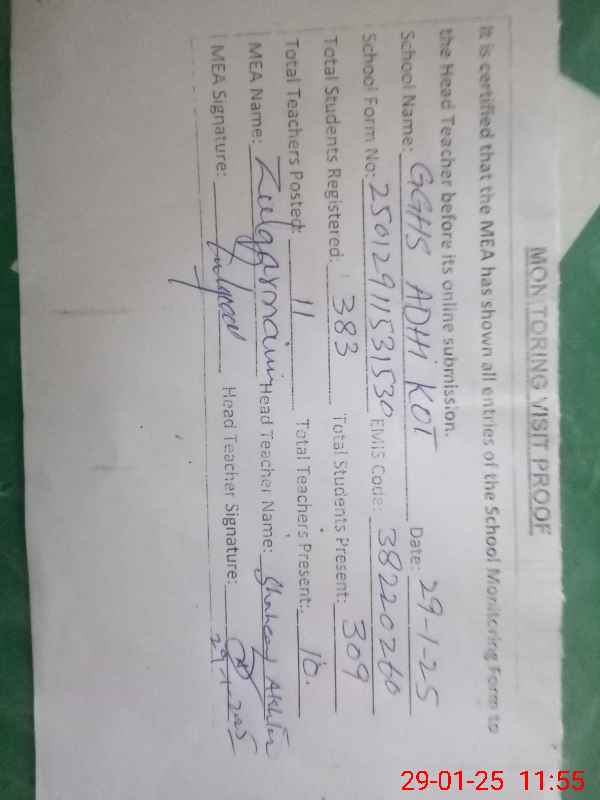 MONITORING VISIT PROOF
It is certified that the MEA has shown all entries of the School Monitoring Form to
the Head Teacher before its online submission.
School Name: GGHS ADHI KOT Date: 29-1-25
School Form No: 25012911531530 EMIS Code: 38220260
Total Students Registered: 383 Total Students Present: 309
Total Teachers Posted: 11 Total Teachers Present: 10.
MEA Name: Zulqarnain Head Teacher Name: Akhtar
MEA Signature: Head Teacher Signature:
29-01-25 11:55